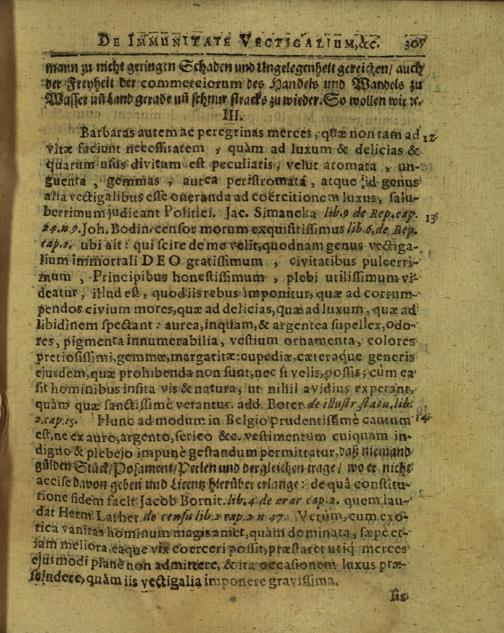 DE IMMUNITATE VECTIGALIUM, &c. 305
mann zu nicht geringen Schaden und Ungelegenheit gereichen/ auch
der Freyheit der commerciorum des Handels und Wandels zu
Wasser uñ Land gerade uñ schnur stracks zu wieder. So wollen wir ꝛc.
III.
Barbaras autem ac peregrinas merces, quæ non tam ad 12
vitæ faciunt necessitatem, quàm ad luxum & delicias &
quarum usus divitum est peculiaris, velut aromata, un-
guenta, gemmas, aurea peristromata, atque id genus
alia vectigalibus esse oneranda ad coërcitionem luxus, salu-
berrimum judicant Politici. Jac. Simancka lib. 9 de Rep. cap. 13
24. n. 9. Joh. Bodin. censor morum exquisitissimus lib. 6. de Rep.
cap. 2. ubi ait: qui scire de me velit, quodnam genus vectiga-
lium immortali DEO gratissimum, civitatibus pulcerri-
mum, Principibus honestissimum, plebi utilissimum vi-
deatur, illud est, quod iis rebus imponitur, quæ ad corrum-
pendos civium mores, quæ ad delicias, quæ ad luxum, quæ ad
libidinem spectant: aurea, inquam, & argentea supellex, odo-
res, pigmenta innumerabilia, vestium ornamenta, colores
pretiosissimi, gemmæ, margaritæ: cupediæ, cæteraque generis
ejusdem, quæ prohibenda non sunt, nec si velis, possis; cùm ea
sit hominibus insita vis & natura, ut nihil avidius expetant,
quàm quæ sanctissimè vetantur. add. Boter. de illustr. statu, lib.
2. cap. 15. Hunc ad modum in Belgio prudentissimè cautum 14
est, ne ex auro, argento, serico &c. vestimentum cuiquam in-
digno & plebejo impune gestandum permittatur, daß niemand
gülden Stück/ Posament/ Perlen und dergleichen trage/ wo er nicht
accise davon geben und Licentz hierüber erlange: de quâ constitu-
tione fidem facit Jacob Bornit. lib. 4. de ærar cap. 2. quem lau-
dat Herm Lather. de censu lib. 2. cap. 2. n. 47. Verùm, cum exo-
tica vanitas hominum magis amet, quàm dominata, sæpe et-
iam meliora, eaque vix coerceri possit, præstaret utiq; merces
ejusmodi planè non admittere, & ita occasionem luxus præ-
scindere, quàm iis vectigalia imponere gravissima.